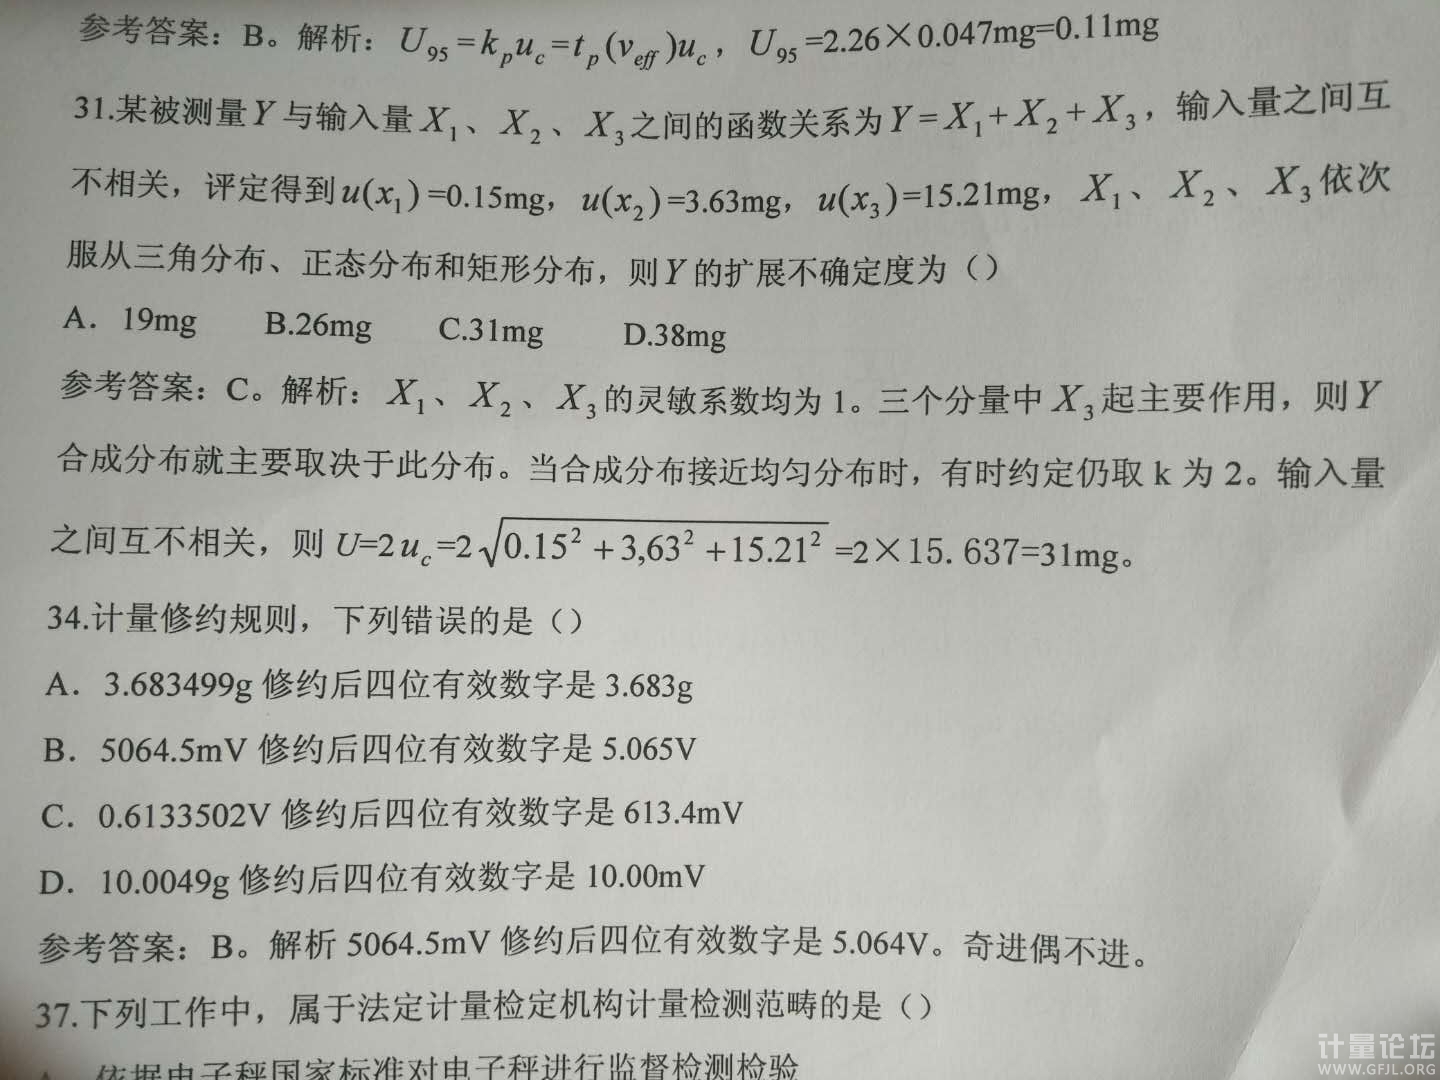 参考答案：B。解析：U₉₅=kₚu_c=tₚ(v_eff)u_c，U₉₅=2.26×0.047mg=0.11mg
31.某被测量Y与输入量X₁、X₂、X₃之间的函数关系为Y=X₁+X₂+X₃，输入量之间互
不相关，评定得到u(x₁)=0.15mg，u(x₂)=3.63mg，u(x₃)=15.21mg，X₁、X₂、X₃依次
服从三角分布、正态分布和矩形分布，则Y的扩展不确定度为（）
A．19mg B.26mg C.31mg D.38mg
参考答案：C。解析：X₁、X₂、X₃的灵敏系数均为1。三个分量中X₃起主要作用，则Y
合成分布就主要取决于此分布。当合成分布接近均匀分布时，有时约定仍取k为2。输入量
之间互不相关，则U=2u_c=2√0.15²+3,63²+15.21²=2×15.637=31mg。
34.计量修约规则，下列错误的是（）
A．3.683499g修约后四位有效数字是3.683g
B．5064.5mV修约后四位有效数字是5.065V
C．0.6133502V修约后四位有效数字是613.4mV
D．10.0049g修约后四位有效数字是10.00mV
参考答案：B。解析5064.5mV修约后四位有效数字是5.064V。奇进偶不进。
37.下列工作中，属于法定计量检定机构计量检测范畴的是（）
A．依据电子秤国家标准对电子秤进行监督检测检验
计量论坛
WWW.GFJL.ORG